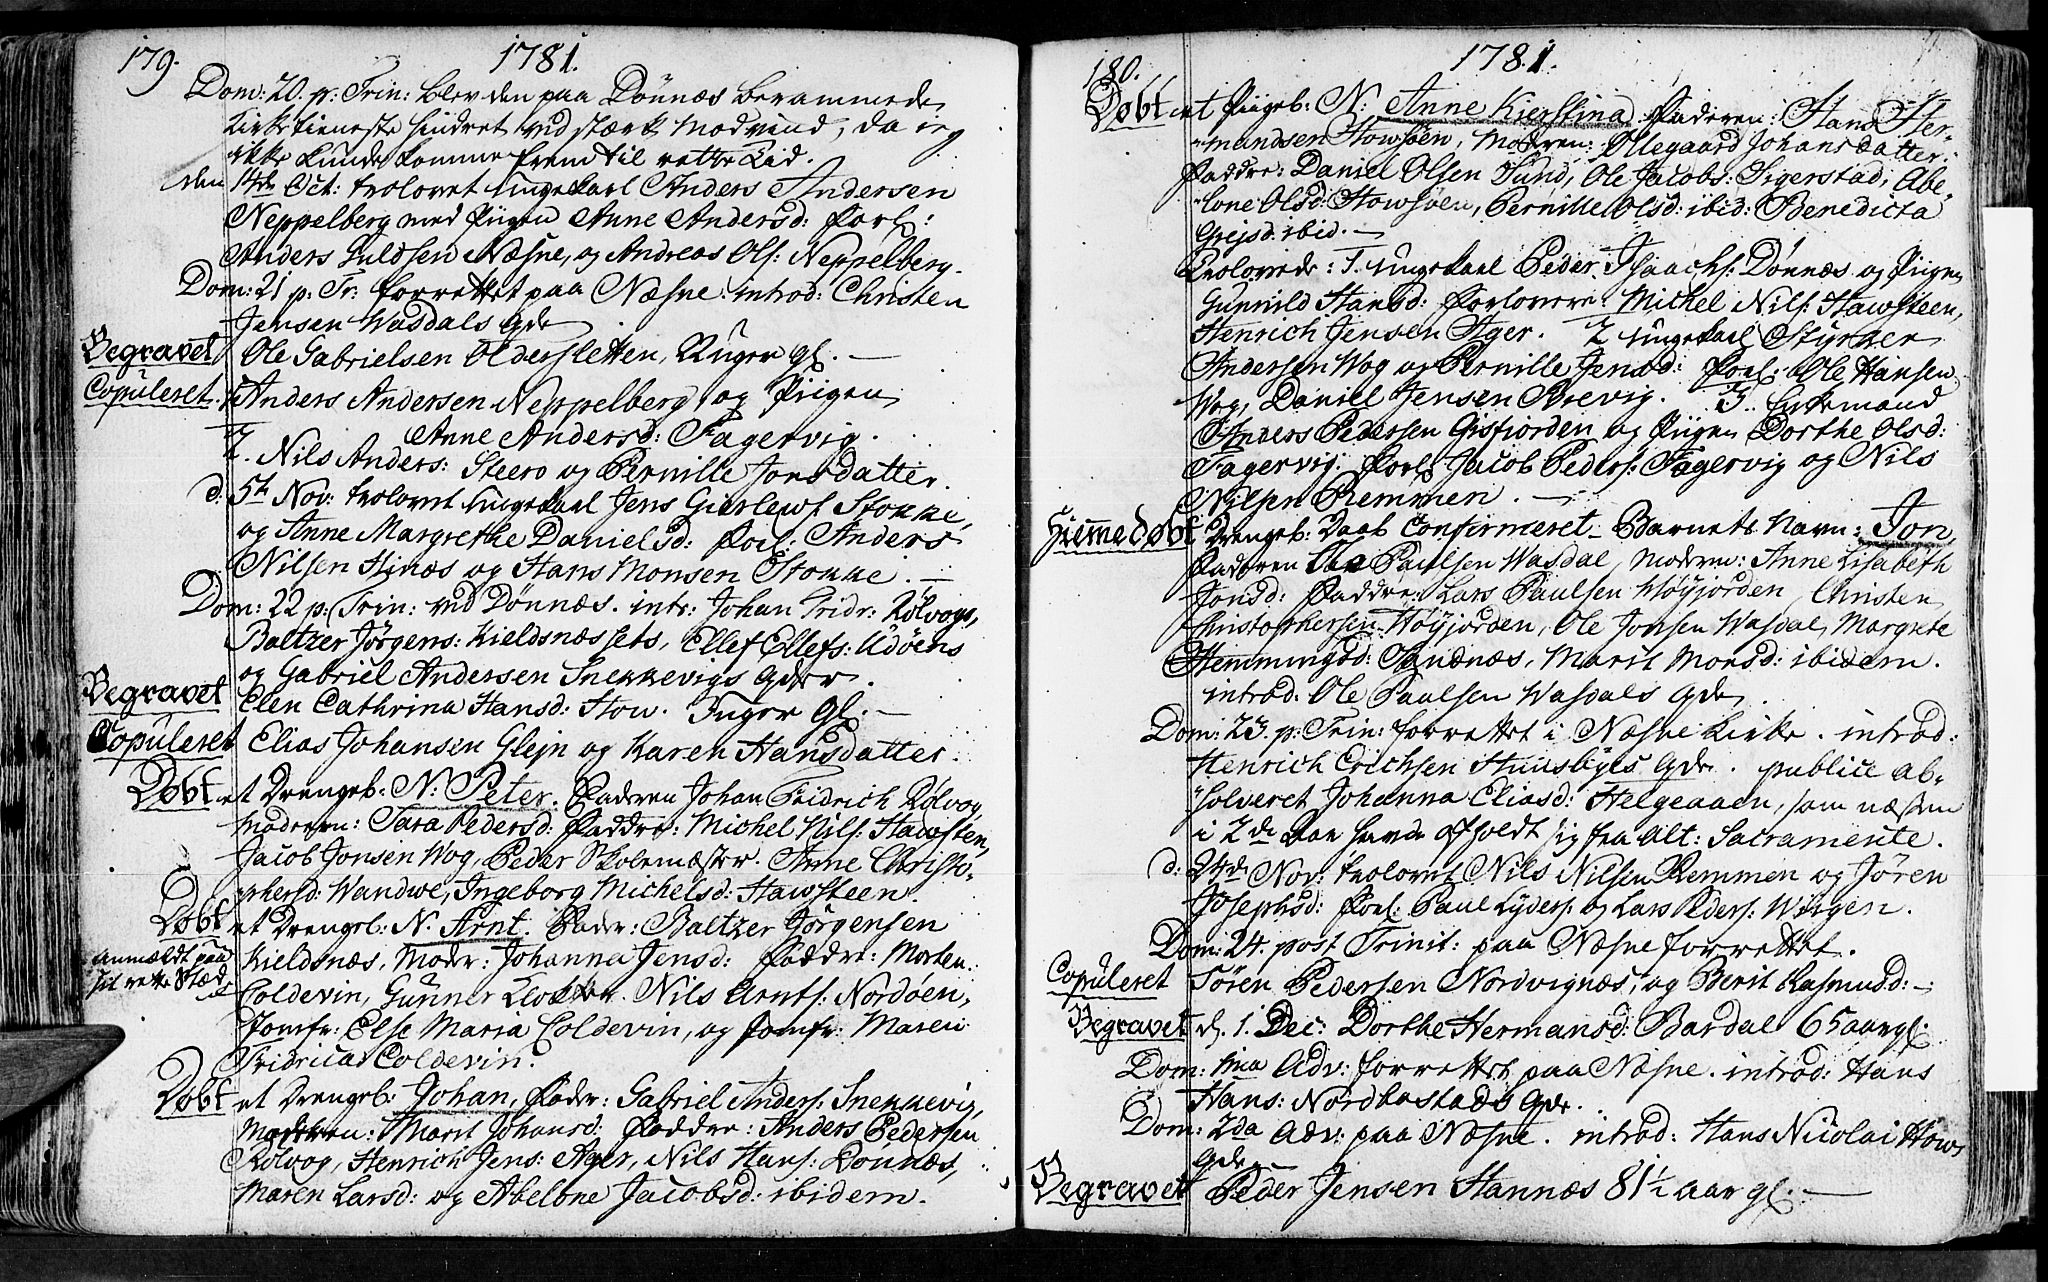 179. 1781.
Dom: 20. p: Trin: blev den paa Dønnæs berammede
Kirketieneste hindret ved stærk Modvind, da ieg
ikke kunde komme frem til rette Tid.
den 14de Oct: trolovet ungekarl Anders Andersen
Neppelberg med Piigen Anne Andersd: Forl:
Anders Guldsen Næsne, og Andreas Ols: Neppelberg.
Dom: 21 p: Tr: forrettet paa Næsne: introd: Christen
Jensen Wasdals qde
Begravet Ole Gabrielsen Oldersletten, Uger gl. —
Copuleret. 1. Anders Andersen Neppelberg og Piigen
Anne Andersd: Fagervig.
2. Nils Anders: Steero og Pernille Jonsdatter.
d: 5te Nov: trolovet ungekarl Jens Gierløwf Stokke,
og Anne Margrethe Danielsd: Forl: Anders
Nilsen Hjnæs og Hans Monsen Stokke. —
Dom: 22 p: Trin: ved Dønnæs. intr: Johan Fridr: Rølvogs,
Baltzer Jørgens: Kieldsnæssets, Ellef Ellefs: Udøens
og Gabriel Andersen Snekkevigs qder.
Begravet Elen Cathrina Hansd: How. Inger Gl. —
Copuleret Elias Johansen Glejn og Karen Hansdatter.
Døbt et Drengeb: N: Peter. Faderen Johan Fridrich Rølvog
Moderen: Sara Pedersd: Faddre: Michel Nils: Hawsten,
Jacob Jonsen Wog, Peder Skolemæster. Anne Christo-
phersd: Wandwe, Ingeborg Michelsd: Hawsteen.
Døbt et Drengeb: N. Arnt. Fader: Baltzer Jørgensen
anmældt paa Kieldsnæs, Moder: Johanna Jensd: Faddre: Morten
sit rette Stæd Coldevin, Gunner Klokker. Nils Arnts: Nordøen,
Jomfr: Else Maria Coldevin, og Jomfr: Maren
Fridrica Coldevin.
Døbt et Drengeb: Johan, Fader: Gabriel Anders: Snekkevig,
Moderen: Marit Johansd: Faddre: Anders Pedersen
Rølvog, Henrich Jens: Ager, Nils Hans: Dønnæs,
Maren Larsd: og Abelone Jacobsd: ibidem.
180. 1781.
Døbt et Piigeb: N: Anne Kierstina. Faderen: Hans Her-
mandsen Howsøen, Moderen: Ollegaard Johansdatter.
Faddre: Daniel Olsen Sund, Ole Jacobs: Sigerstad, Abe-
lone Olsd: Howsøen, Pernille Olsd: ibid: Benedicta
Grejsd. ibid. —
Trolovede: 1. ungekarl Peder Isaachs: Dønnæs og Piigen
Gunnild Hansd: Forlovere: Michel Nils: Hawsteen,
Henrich Jensen Ager. 2 ungekarl Styrker
Andersen Wog og Pernille Jensd: Forl: Ole Hansen
Wog, Daniel Jensen Brevig. 3. Enkemand
Anders Pedersen Gisfjorden og Piigen Dorthe Olsd:
Fagervig. Forl: Jacob Peders: Fagervig og Nils
Nilsen Remmen. —
Hiemmedøbt Drengeb: Daab Confirmeret. Barnets Navn: Jon,
Faderen Ole Paulsen Wasdal, Moderen: Anne Lisabeth
Jonsd: Faddre: Lars Paulsen Høyjorden, Christen
Christophersen Høyjorden, Ole Jonsen Wasdal, Margrete
Hemmingsd: Sandnæs, Marit Monsd: ibidem.
introd: Ole Paulsen Wasdals qde.
Dom: 23. p: Trin: forrettet i Næsne Kirke. introd:
Henrich Erichsen Huusbyes qde. publice ab-
solveret Johanna Eliasd: Helgeaaen, som næsten
i 2de Aar havde afholdt sig fra Alt: Sacramente.
d: 24de Nov: trolovet Nils Nilsen Remmen og Jøren
Josephsd: Forl: Paul Lyders: og Lars Peders: Wirgen.
Dom: 24. post Trinit: paa Næsne forrettet.
Copuleret Søren Pedersen Nordvignæs, og Berit Rasmusd: —
Begravet d. 1. Dec: Dorthe Hermansd: Bardal 65 aar gl.
Dom: 1ma Adv: forrettet paa Næsne. introd: Hans
Hans: Nordbostads qde.
Dom: 2da Adv: paa Næsne. introd: Hans Nicolai How
qde. —
Begravet Peder Jensen Hannæs 81½ aar gl. —